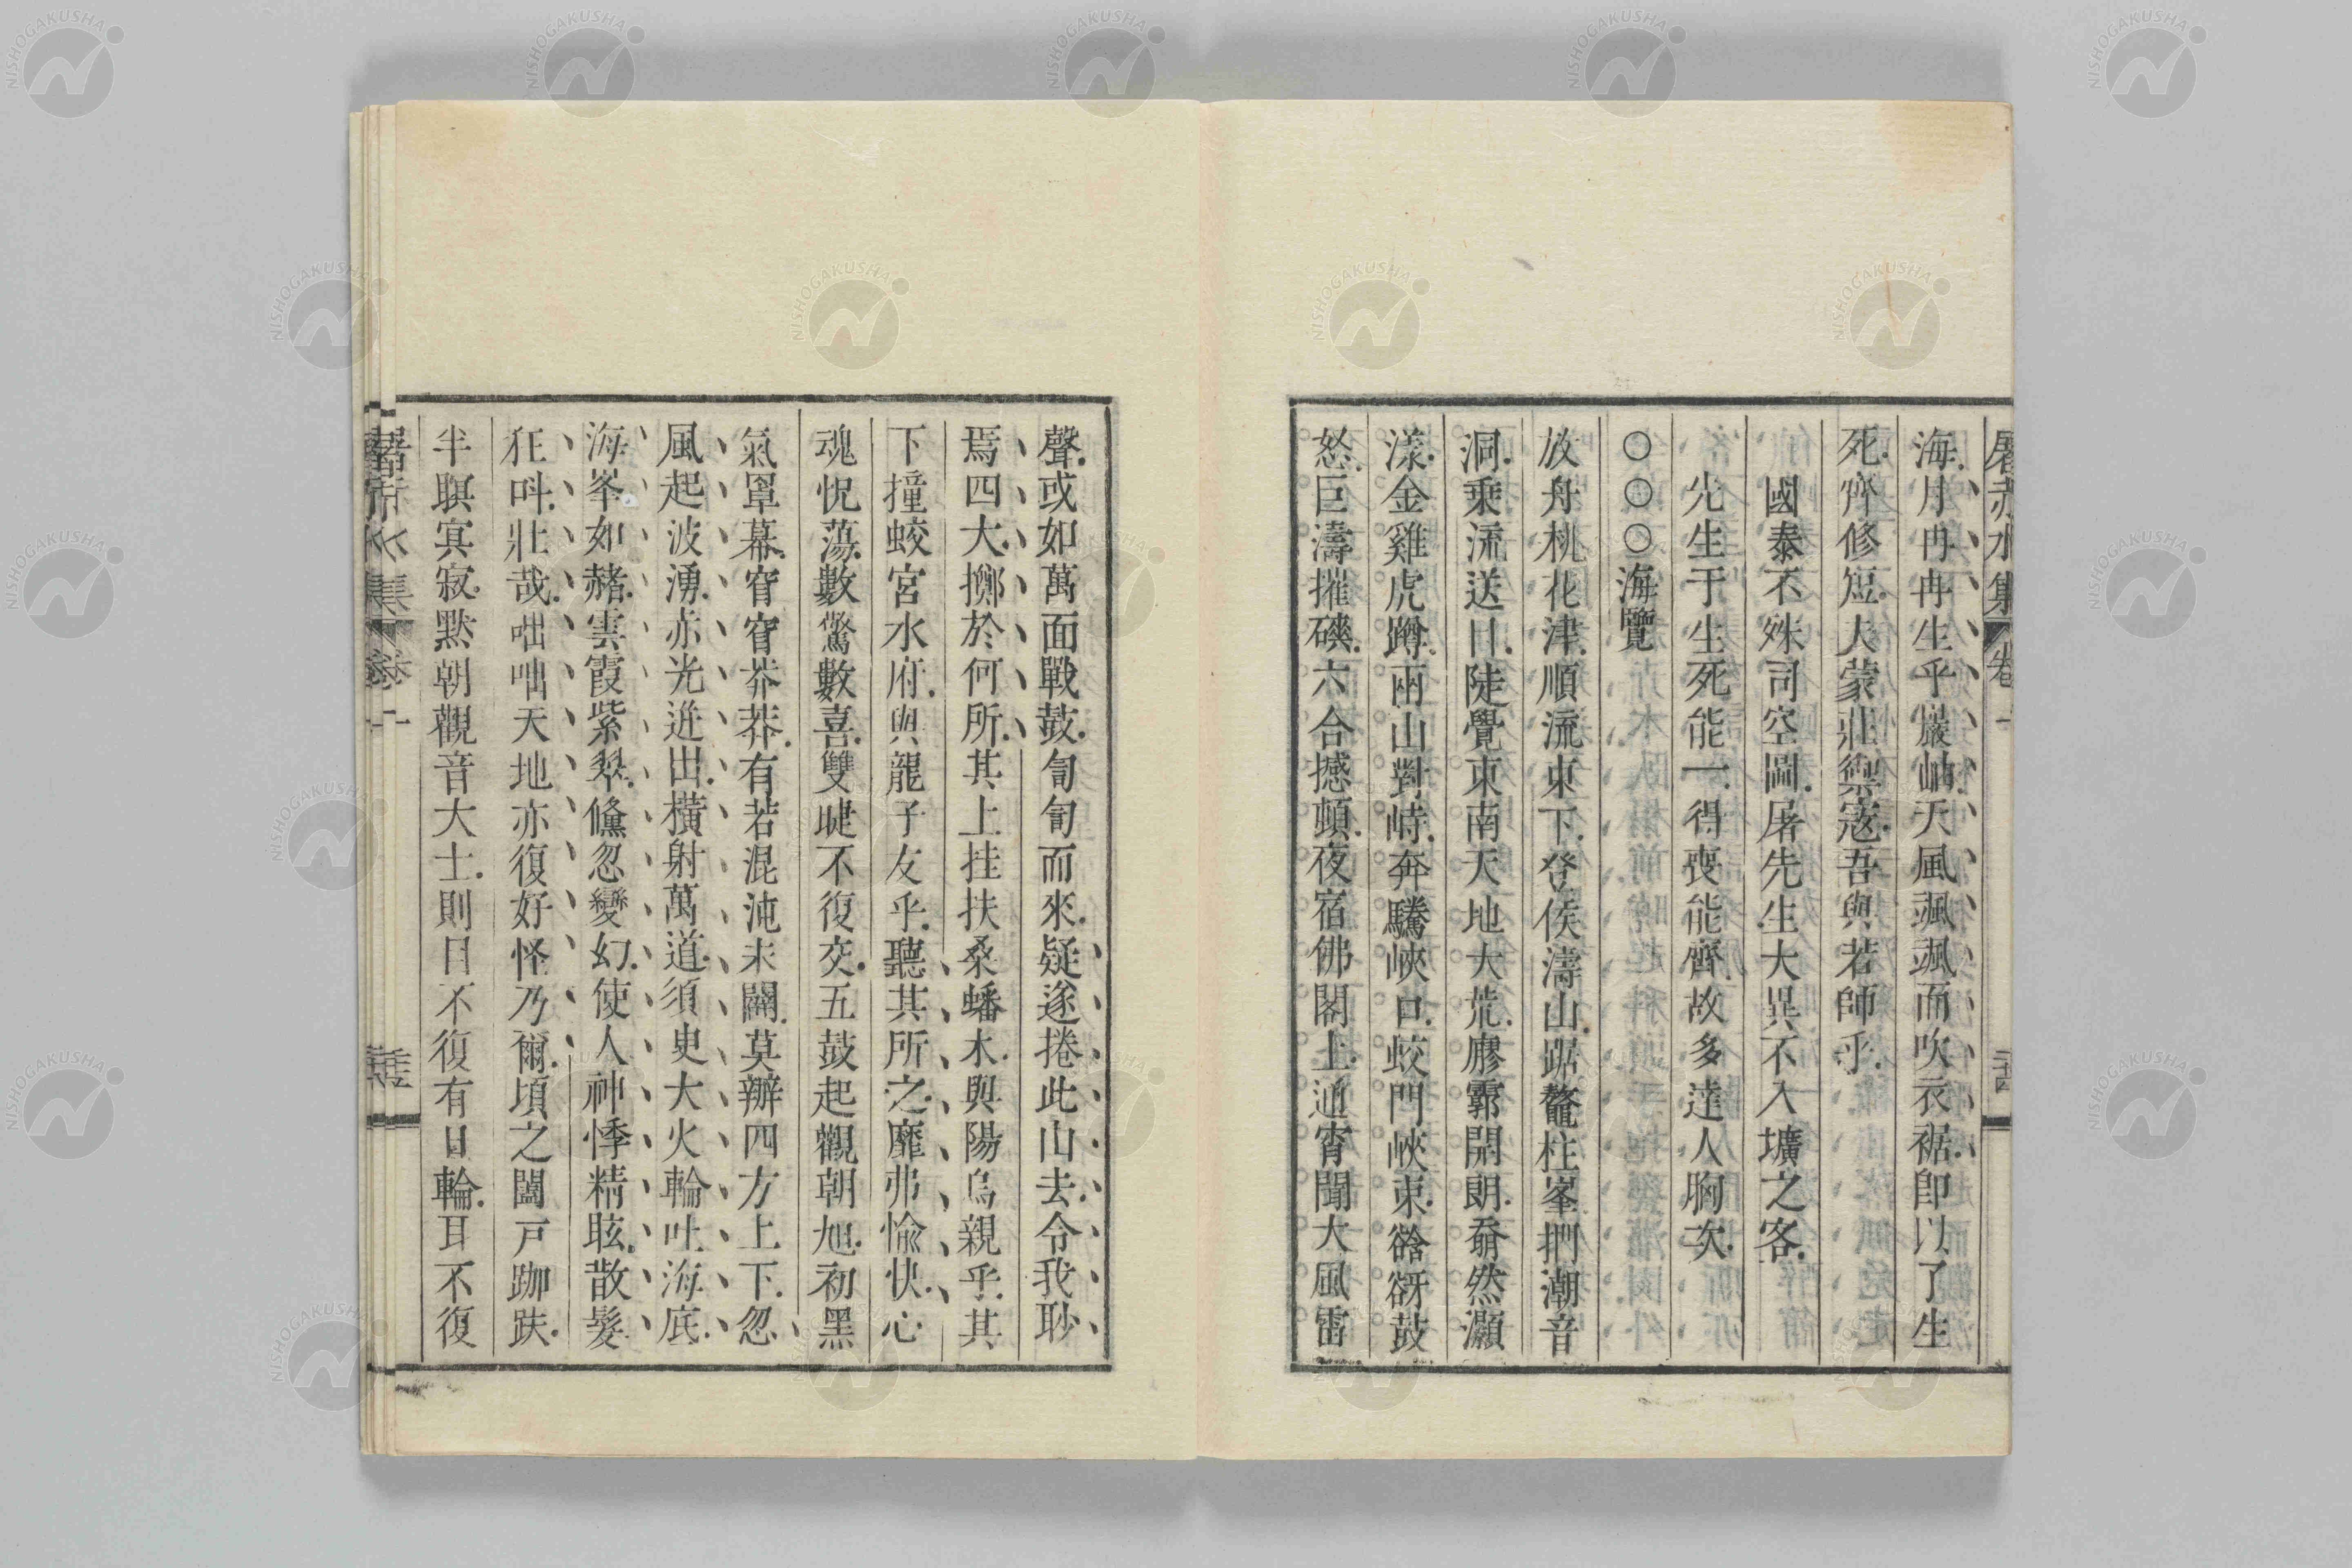 屠赤水集 卷一
海月冉冉生乎巖岫天風颯颯而吹衣裾卽以了生
死齊修短大蒙莊禦寇吾與若師乎
國泰不姝司空圖屠先生大異不入壙之客
先生于生死能一得喪能齊故多達人胸次
○○○海覽
放舟桃花津順流東下登侯濤山踞鼇柱峯捫潮音
洞乘流送日陡覺東南天地大荒廖霩開朗奫然灝
漾金雞虎蹲兩山對峙奔騰峽口蛟門峽東谽谺鼓
怒巨濤摧磢六合撼頓夜宿佛閣上通宵聞大風雷
聲或如萬面戰鼓訇訇而來疑遂捲此山去令我眇
焉四大擲於何所其上挂扶桑蟠木與陽烏親乎其
下撞蛟宮水府與龍子友乎聽其所之靡弗愉快心
魂怳蕩數驚數喜雙睫不復交五鼓起觀朝旭初黑
氣罩幕窅窅莽莽有若混沌未闢莫辦四方上下忽
風起波湧赤光迸出橫射萬道須臾大火輪吐海底
海峯如赭雲霞紫翠儵忽變幻使人神悸精眩散髮
狂呌壯哉咄咄天地亦復好怪乃爾頃之闔戸跏趺
半瞑寞寂黙朝觀音大士則目不復有日輪耳不復
屠赤水集 卷一